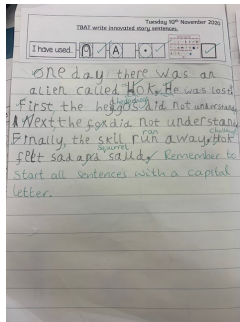 Tuesday 10th November 2020
TBAT write innovated story sentences.
I have used. A .
One day there was an
alien called Hok. He was lost.
First, the did not understand
hedgehog
Next, the fox did not understand
ran
Finally, the skil run away. Hok
squirrel
felt sad and said, Remember to
start all sentences with a capital
letter.